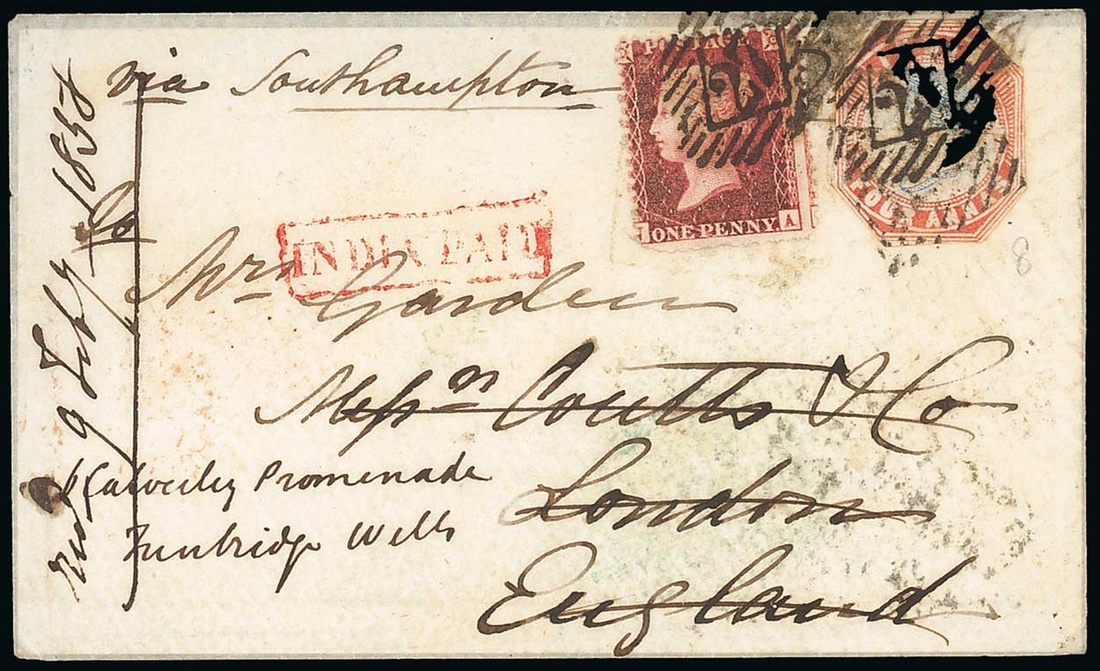 via Southampton
To
Mrs Garden
Messrs Coutts & Co
London
England
Calverley Promenade
Tunbridge Wells
9 Feby 1858
INDIA PAID
POSTAGE
ONE PENNY
A
FOUR ANNAS
2
2
8